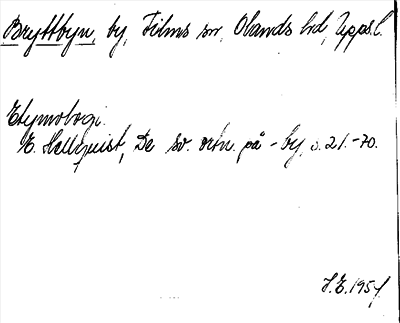 Bryttbyn, by, Films sn, Olands hd, Upps.l.
Etymologi.
E. Hellquist, De sv. ortn. på -by, s. 21.-70.
H.E. 1957.